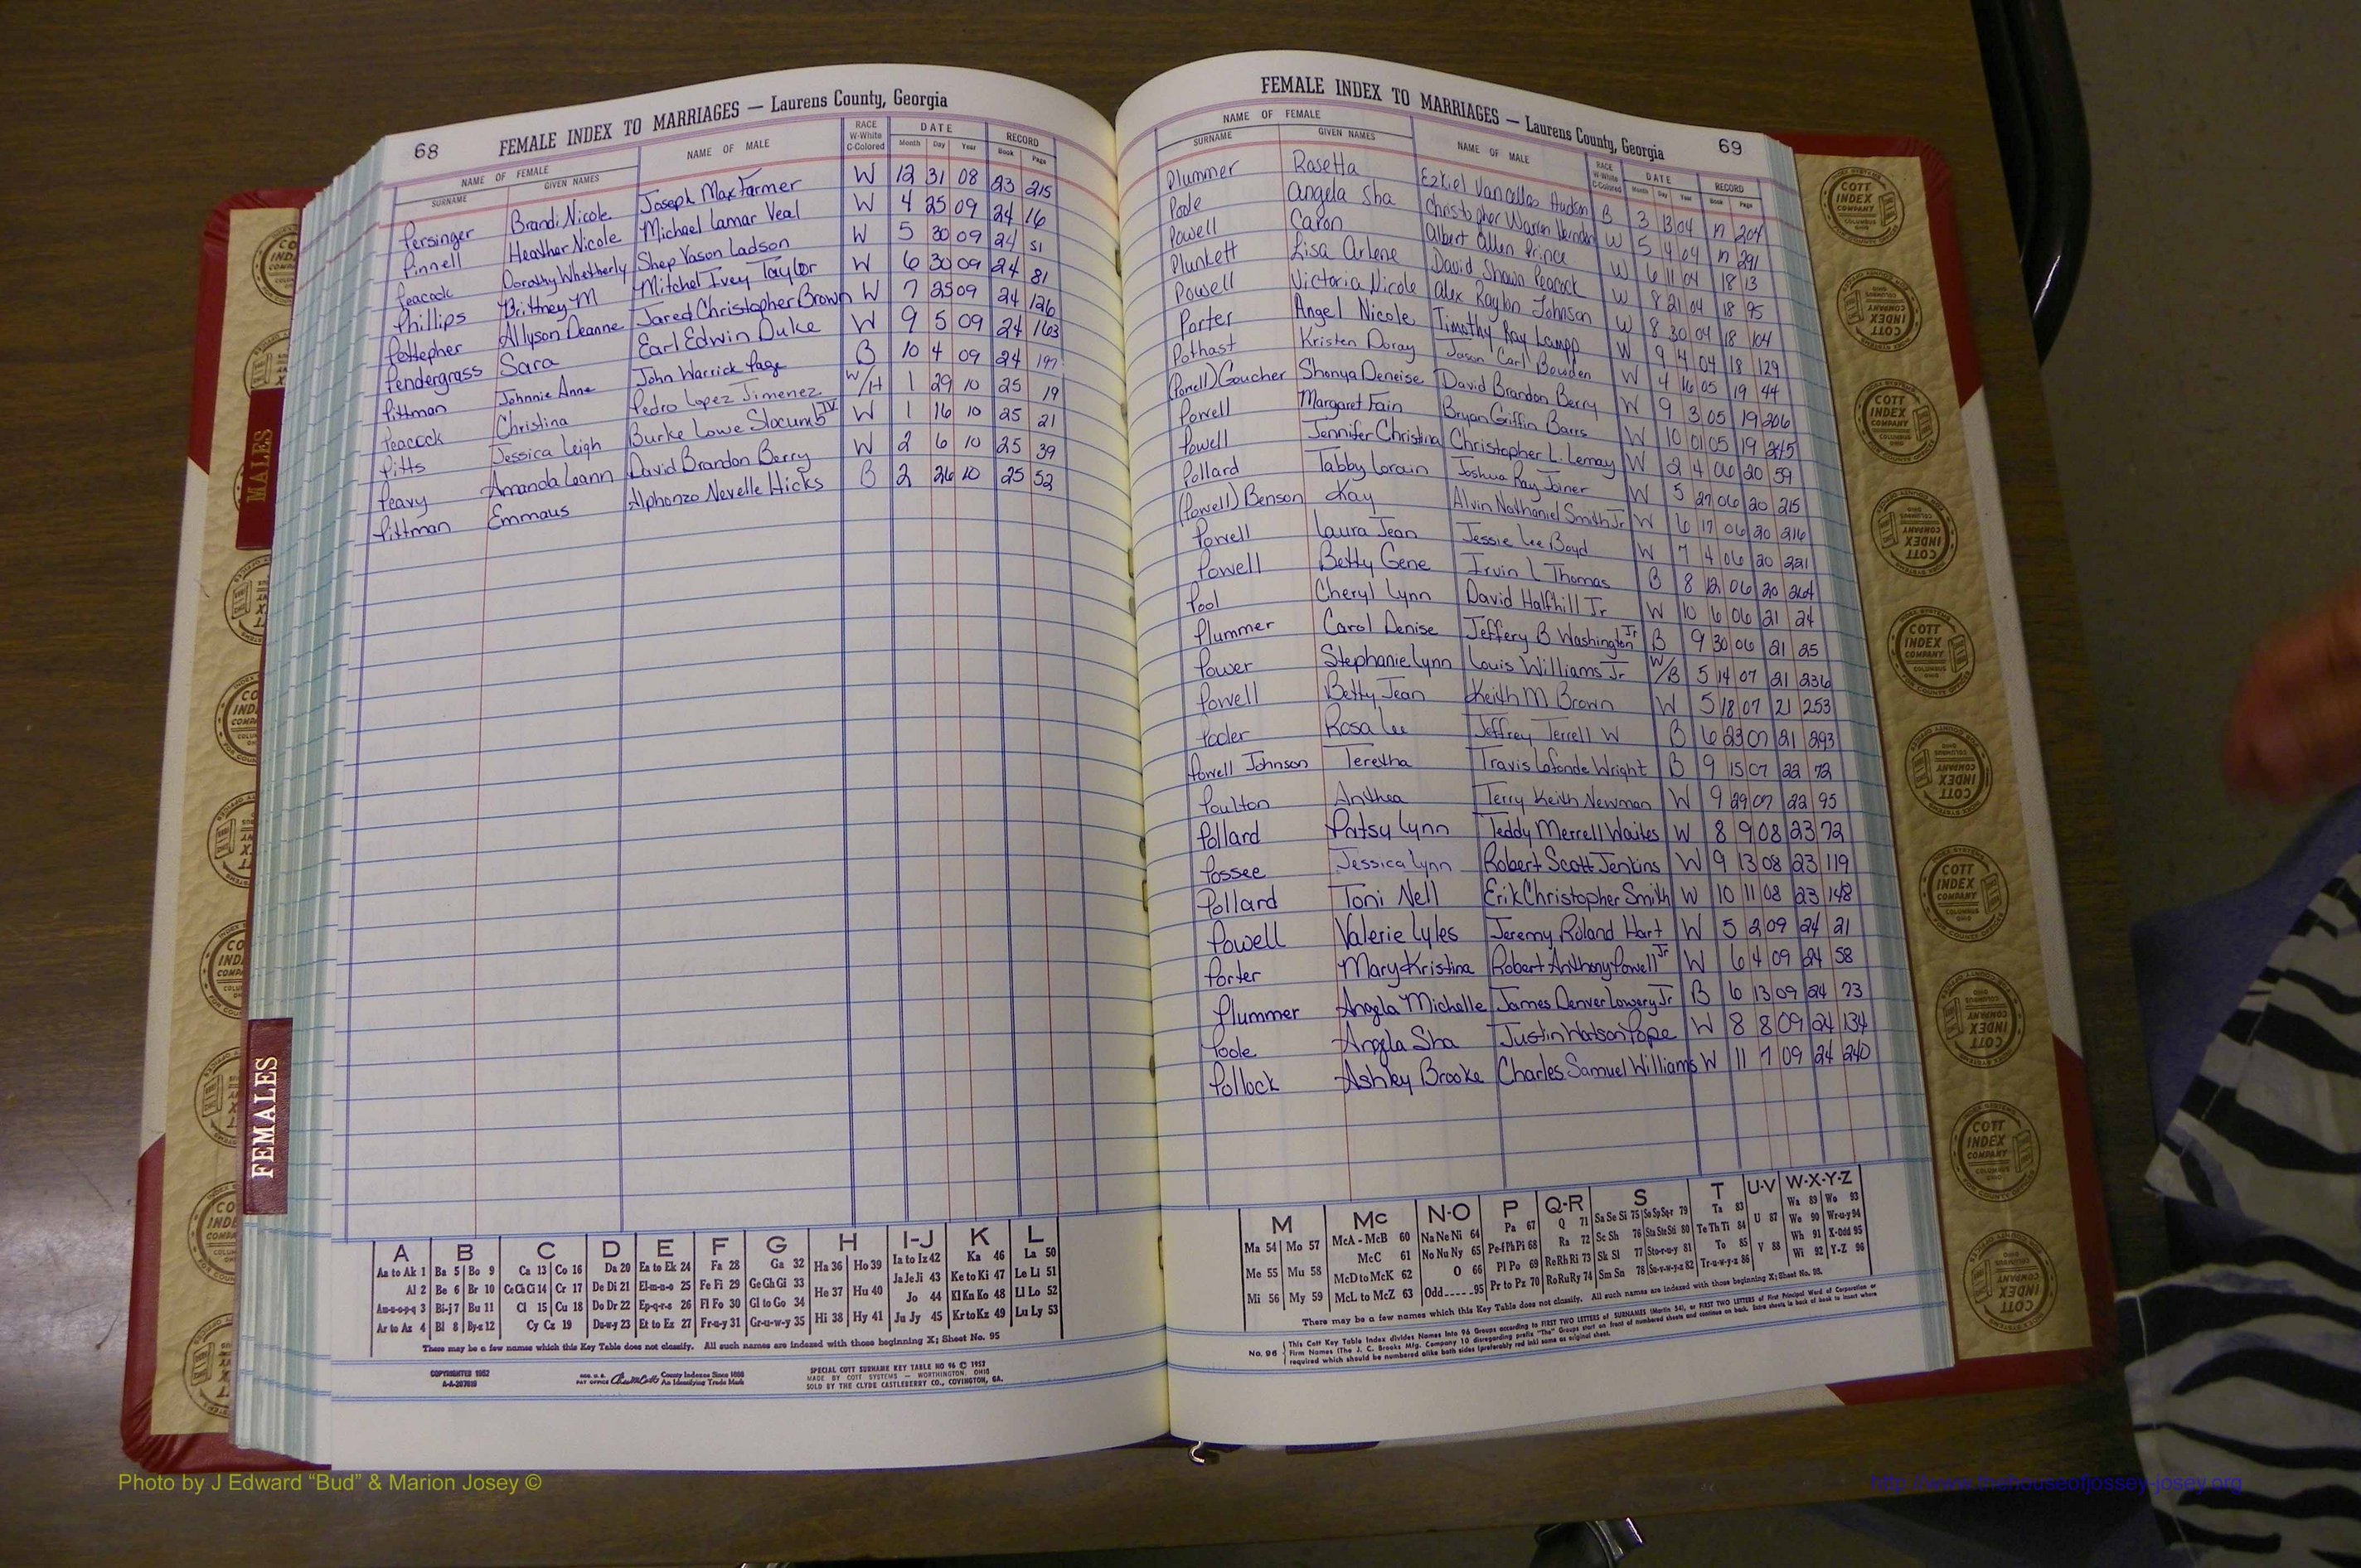 68 FEMALE INDEX TO MARRIAGES — Laurens County, Georgia
NAME OF FEMALE NAME OF MALE RACE DATE RECORD
SURNAME GIVEN NAMES W-White C-Colored Month Day Year Book Page
Persinger Brandi Nicole Joseph Max Farmer W 12 31 08 23 215
Pinnell Heather Nicole Michael Lamar Veal W 4 25 09 24 16
Peacock Dorothy Whetherly Shep Vason Ladson W 5 30 09 24 51
Phillips Brittney M Mitchel Ivey Taylor W 6 30 09 24 81
Pottepher Allyson Deanne Jared Christopher Brown W 7 25 09 24 126
Pendergrass Sara Earl Edwin Duke W 9 5 09 24 163
Pittman Johnnie Anne John Warrick Page B 10 4 09 24 197
Peacock Christina Pedro Lopez Jimenez W/H 1 29 10 25 19
Pitts Jessica Leigh Burke Lowe Slocumb IV W 1 16 10 25 21
Peavy Amanda Leann David Brandon Berry W 2 6 10 25 39
Pittman Emmaus Alphonzo Nevelle Hicks B 2 26 10 25 52
A B C D E F G H I-J K L
Aa to Ak 1 Ba 5 Bo 9 Ca 13 Co 16 Da 20 Ea to Ek 24 Fa 28 Ga 32 Ha 36 Ho 39 Ia to Iz 42 Ka 46 La 50
Al 2 Be 6 Br 10 Ce Ch Ci 14 Cr 17 De Di 21 El-m-n-o 25 Fe Fi 29 Ge Gh Gi 33 He 37 Hu 40 Ja Je Ji 43 Ke to Ki 47 Le Li 51
Au-n-o-p-q 3 Bi-j 7 Bu 11 Cl 15 Cu 18 Do Dr 22 Ep-q-r-s 26 Fl Fo 30 Gl to Go 34 Hi 38 Hy 41 Jo 44 Kl Kn Ko 48 Ll Lo 52
Ar to Az 4 Bl 8 By-z 12 Cy Cz 19 Du-w-y 23 Et to Ez 27 Fr-u-y 31 Gr-u-w-y 35 Ju Jy 45 Kr to Kz 49 Lu Ly 53
There may be a few names which this Key Table does not classify. All such names are indexed with those beginning X; Sheet No. 95
COPYRIGHTED 1952
A-A-207019
REG. U.S. PAT OFFICE County Indexes Since 1888 An Identifying Trade Mark
SPECIAL COTT SURNAME KEY TABLE NO 96 © 1952
MADE BY COTT SYSTEMS — WORTHINGTON, OHIO
SOLD BY THE CLYDE CASTLEBERRY CO., COVINGTON, GA.
FEMALE INDEX TO MARRIAGES — Laurens County, Georgia 69
NAME OF FEMALE NAME OF MALE RACE DATE RECORD
SURNAME GIVEN NAMES W-White C-Colored Month Day Year Book Page
Plummer Rosetta Ezkiel Vancellas Hudson B 3 13 04 17 204
Poole Angela Sha Christopher Warren Herndon W 5 4 04 17 291
Powell Caron Albert Allen Prince W 6 11 04 18 13
Plunkett Lisa Arlene David Shawn Peacock W 8 21 04 18 95
Powell Victoria Nicole Alex Raylon Johnson W 8 30 04 18 104
Porter Angel Nicole Timothy Ray Lampp W 9 4 04 18 129
Pothast Kristen Doray Jason Carl Bowden W 4 16 05 19 44
(Powell) Goucher Shonya Deneise David Brandon Berry W 9 3 05 19 206
Powell Margaret Fain Bryan Griffin Barrs W 10 01 05 19 245
Powell Jennifer Christina Christopher L. Lemay W 2 4 06 20 59
Pollard Tabby Lorain Joshua Ray Joiner W 5 27 06 20 215
(Powell) Benson Kay Alvin Nathaniel Smith Jr W 6 17 06 20 216
Powell Laura Jean Jessie Lee Boyd W 7 4 06 20 221
Powell Betty Gene Irvin L Thomas B 8 12 06 20 264
Pool Cheryl Lynn David Halfhill Jr W 10 6 06 21 24
Plummer Carol Denise Jeffery B Washington Jr B 9 30 06 21 25
Power Stephanie Lynn Louis Williams Jr W/B 5 14 07 21 236
Powell Betty Jean Keith M Brown W 5 18 07 21 253
Pooler Rosa Lee Jeffrey Terrell W B 6 23 07 21 293
Powell Johnson Teretha Travis Lafonde Wright B 9 15 07 22 72
Poulton Anithea Terry Keith Newman W 9 29 07 22 95
Pollard Patsy Lynn Teddy Merrell Waites W 8 9 08 23 72
Possee Jessica Lynn Robert Scott Jenkins W 9 13 08 23 119
Pollard Toni Nell Erik Christopher Smith W 10 11 08 23 148
Powell Valerie Lyles Jeremy Roland Hart W 5 2 09 24 21
Porter Mary Kristina Robert Anthony Powell Jr W 6 4 09 24 58
Plummer Angela Michelle James Denver Lowery Jr B 6 13 09 24 73
Poole Angela Sha Justin Watson Pope W 8 8 09 24 134
Pollock Ashley Brooke Charles Samuel Williams W 11 7 09 24 240
M Mc N-O P Q-R S T U-V W-X-Y-Z
Ma 54 Mo 57 McA - McB 60 Na Ne Ni 64 Pa 67 Q 71 Sa Se Si 75 So Sp Sq-r 79 Ta 83 U 87 Wa 89 Wo 93
Me 55 Mu 58 McC 61 No Nu Ny 65 Pe-f Ph Pi 68 Ra 72 Sc Sh 76 Sta Ste Sti 80 Te Th Ti 84 V 88 We 90 Wr-u-y 94
Mi 56 My 59 McD to McK 62 O 66 Pl Po 69 Re Rh Ri 73 Sk Sl 77 Sto-r-u-y 81 To 85 Wh 91 X-Odd 95
McL to McZ 63 Odd 95 Pr to Pz 70 Ro Ru Ry 74 Sm Sn 78 Su-v-w-y-z 82 Tr-u-w-y-z 86 Wi 92 Y-Z 96
There may be a few names which this Key Table does not classify. All such names are indexed with those beginning X; Sheet No. 95.
No. 96 This Cott Key Table Index divides Names Into 96 Groups according to FIRST TWO LETTERS of SURNAMES (Martin 54), or FIRST TWO LETTERS of First Principal Word of Corporation or
Firm Names (The J. C. Brooks Mfg. Company 10 disregarding prefix "The" Groups start on front of numbered sheets and continue on back. Extra sheets in back of book to insert where
required which should be numbered alike both sides (preferably red ink) same as original sheet.
MALES
FEMALES
COTT INDEX COMPANY COLUMBUS OHIO
INDEX SYSTEMS FOR COUNTY OFFICES
Photo by J Edward “Bud” & Marion Josey ©
http://www.thehouseofjossey-josey.org